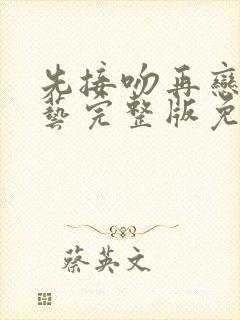 先接吻再戀
藝完整版免
蔡英文